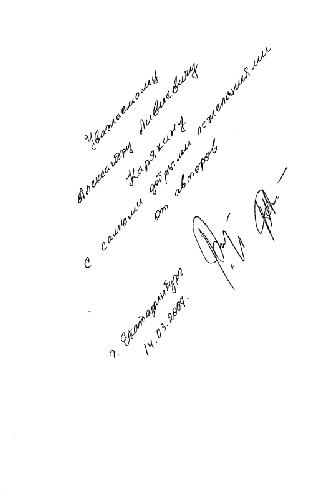 Уважаемому
Александру Алексеевичу
Карякину
с самыми добрыми пожеланиями
от авторов
г. Екатеринбург
14.03.2007.